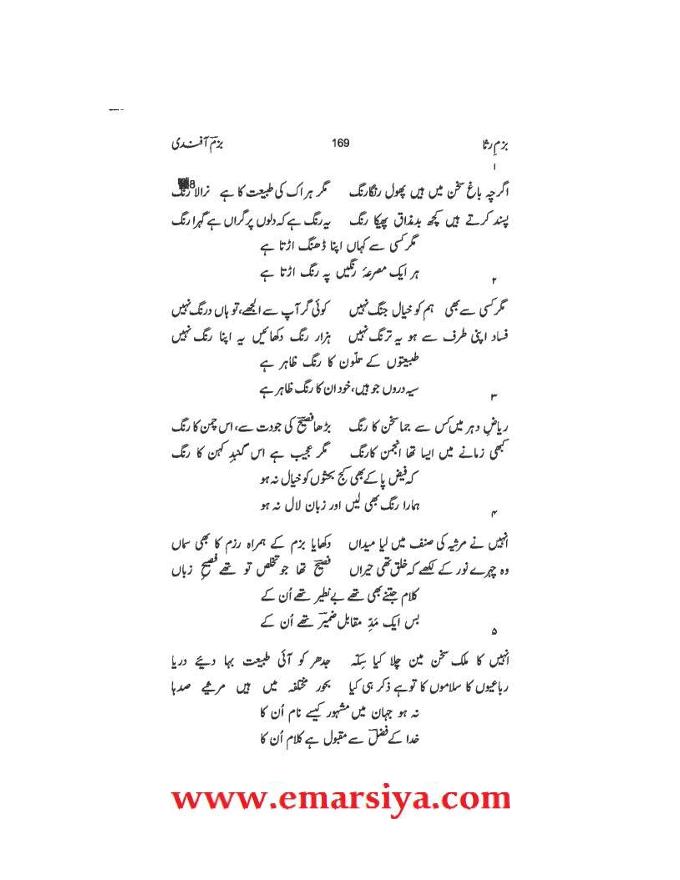 بزمِ رثا 169 بزمؔ آفندی
۱
اگرچہ باغِ سخن میں ہیں پھول رنگارنگ مگر ہر اک کی طبیعت کا ہے نرالا رنگ
پسند کرتے ہیں کچھ بدمذاق پھیکا رنگ یہ رنگ ہے کہ دلوں پر گراں ہے گہرا رنگ
مگر کسی سے کہاں اپنا ڈھنگ اڑتا ہے
ہر ایک مصرعۂ رنگیں پہ رنگ اڑتا ہے
۲
مگر کسی سے بھی ہم کو خیال جنگ نہیں کوئی گر آپ سے الجھے، تو ہاں درنگ نہیں
فساد اپنی طرف سے ہو یہ ترنگ نہیں ہزار رنگ دکھائیں یہ اپنا رنگ نہیں
طبیعتوں کے تلّون کا رنگ ظاہر ہے
سیہ دروں جو ہیں، خود ان کا رنگ ظاہر ہے
۳
ریاضِ دہر میں کس سے جما سخن کا رنگ بڑھا فصیحؔ کی جودت سے، اس چمن کا رنگ
کبھی زمانے میں ایسا تھا انجمن کا رنگ مگر عجیب ہے اس گنبدِ کہن کا رنگ
کہ فیض پا کے بھی کج بحثوں کو خیال نہ ہو
ہمارا رنگ بھی لیں اور زبان لال نہ ہو
۴
انہیں نے مرثیہ کی صنف میں لیا میداں دکھایا بزم کے ہمراہ رزم کا بھی سماں
وہ چہرے نور کے لکھے کہ خلق تھی حیراں فصیحؔ تھا جو تخلص تو تھے فصیحِ زباں
کلام جتنے بھی تھے بے نظیر تھے اُن کے
بس ایک مَدِّ مقابل ضمیرؔ تھے اُن کے
۵
انہیں کا ملک سخن مین چلا کیا سِکّہ جدھر کو آئی طبیعت بہا دیئے دریا
رباعیوں کا سلاموں کا تو ہے ذکر ہی کیا بحور مختلفہ میں ہیں مرثیے صدہا
نہ ہو جہان میں مشہور کیسے نام اُن کا
خدا کے فضل سے مقبول ہے کلام اُن کا
www.emarsiya.com